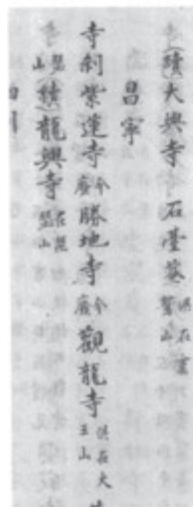 (續)大興寺 石臺菴俱在靈鷲山
昌寧
寺刹紫蓮寺今廢勝地寺今廢觀龍寺俱在火王山
瑟山(續)龍興寺在琵瑟山